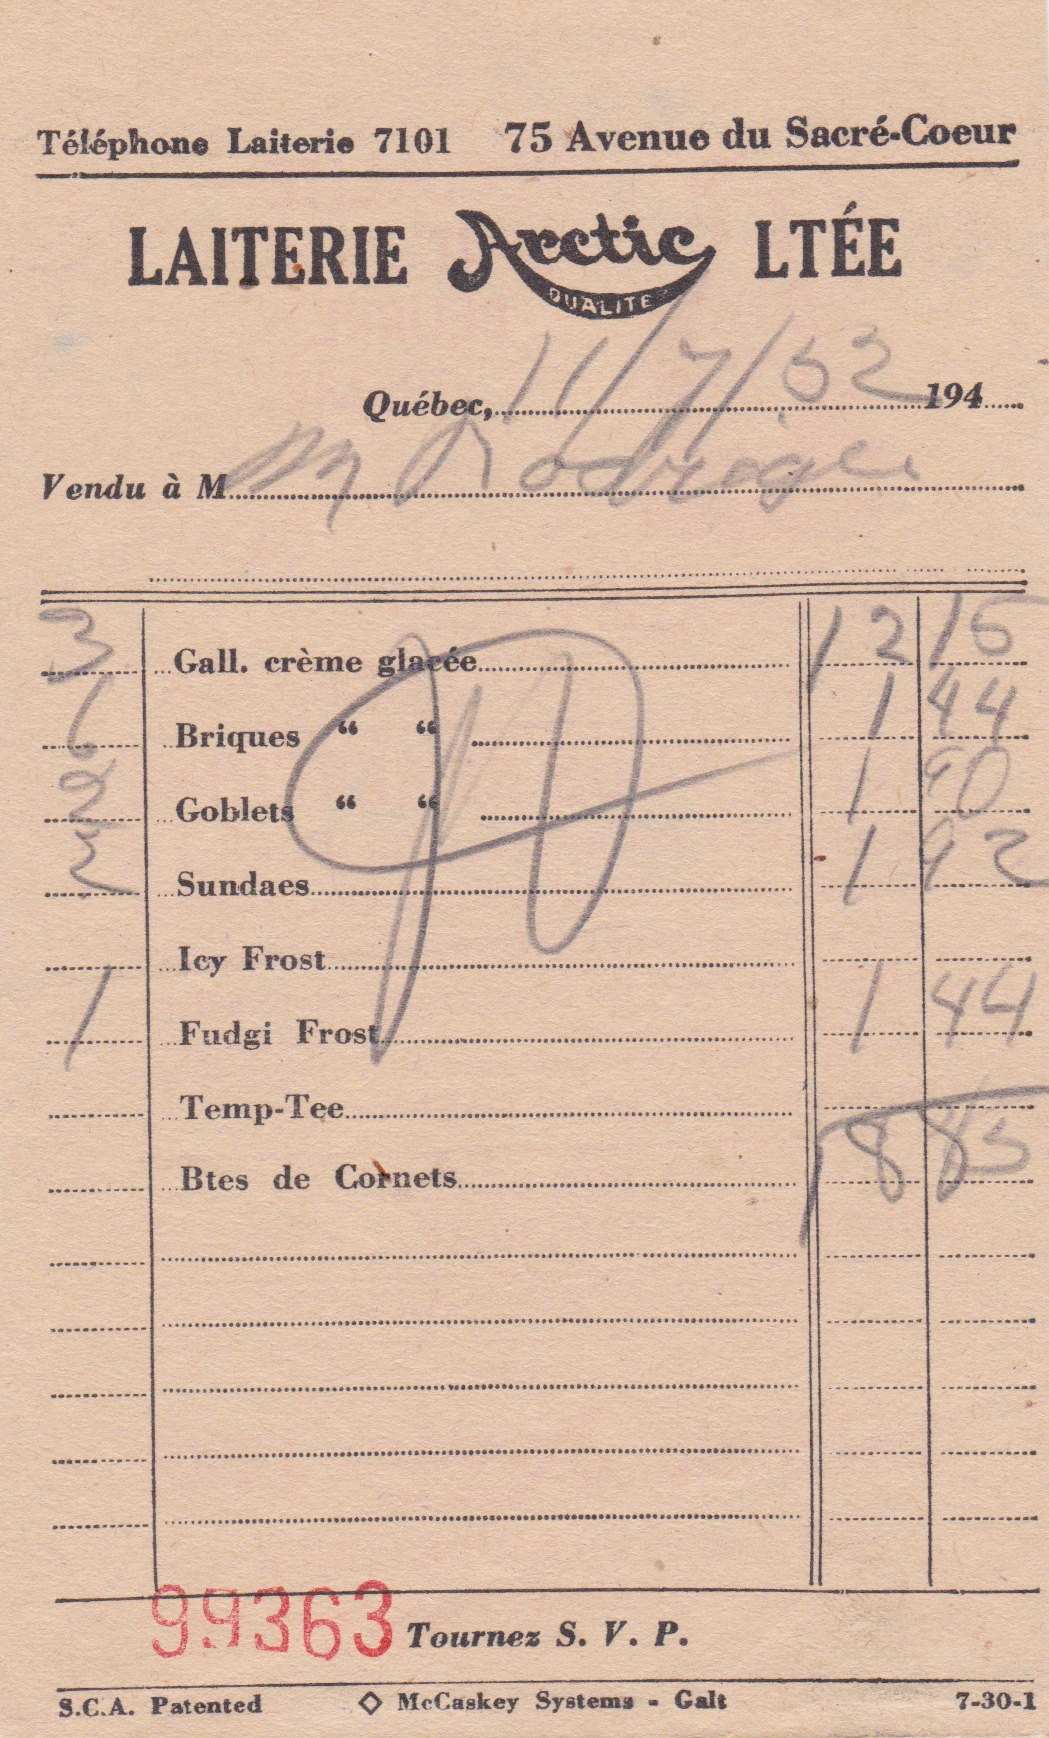 Téléphone Laiterie 7101 75 Avenue du Sacré-Coeur
LAITERIE Arctic LTÉE
QUALITE
Québec, 11/7/52 194
Vendu à M
3 Gall. crème glacée 12 15
6 Briques “ “ 1 44
2 Goblets “ “ 1 90
2 Sundaes 1 92
Icy Frost
1 Fudgi Frost 1 44
Temp-Tee
18 85
Btes de Cornets
99363 Tournez S. V. P.
S.C.A. Patented ◇ McCaskey Systems - Galt 7-30-1